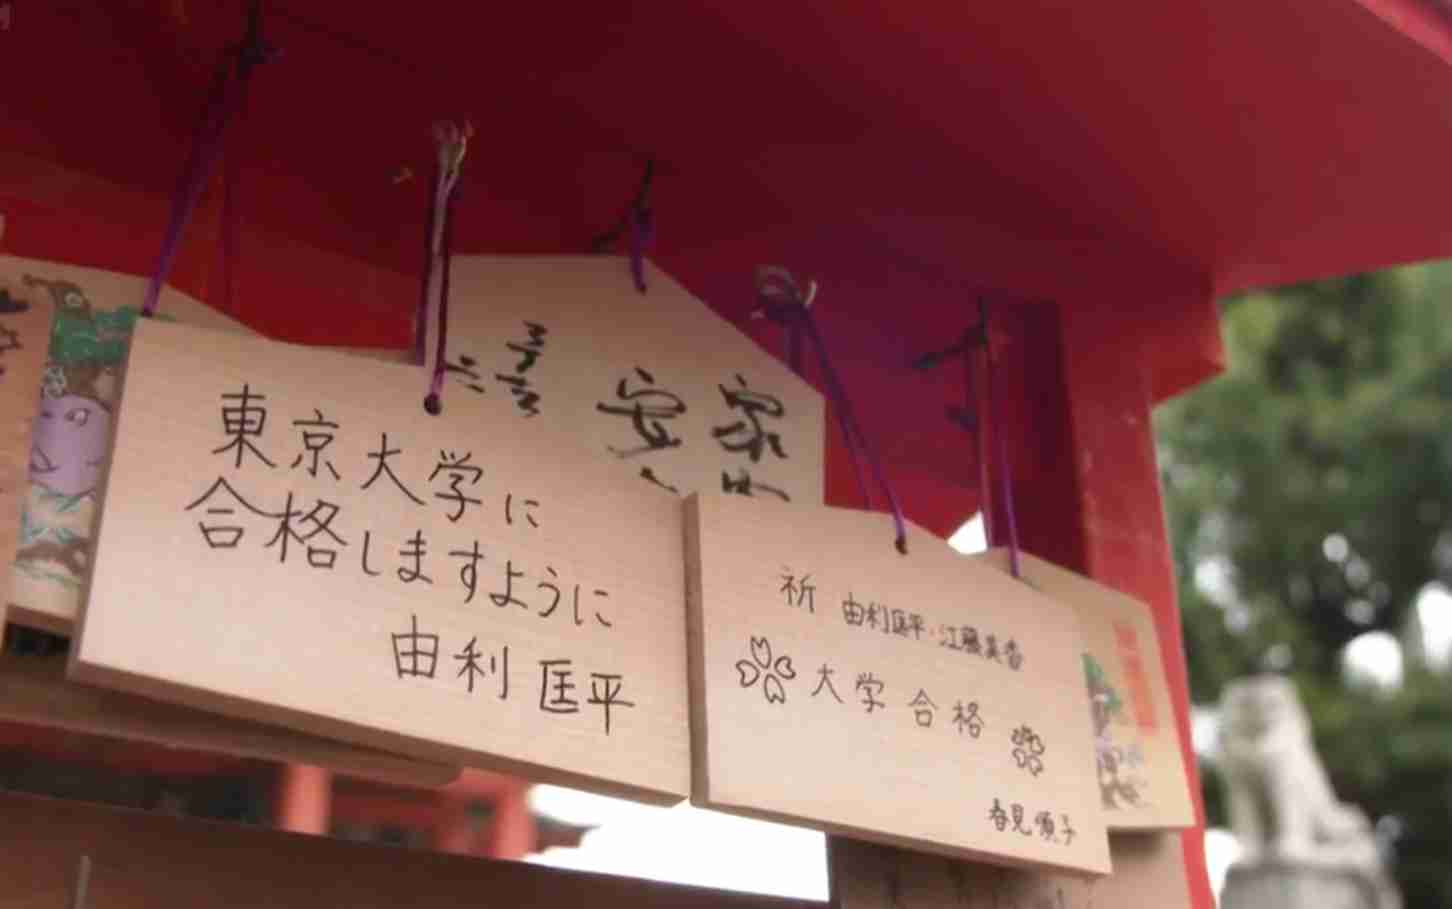 東京大学に
合格しますように
由利匡平
家
安
祈 由利匡平・江藤美香
大学合格
春見順子